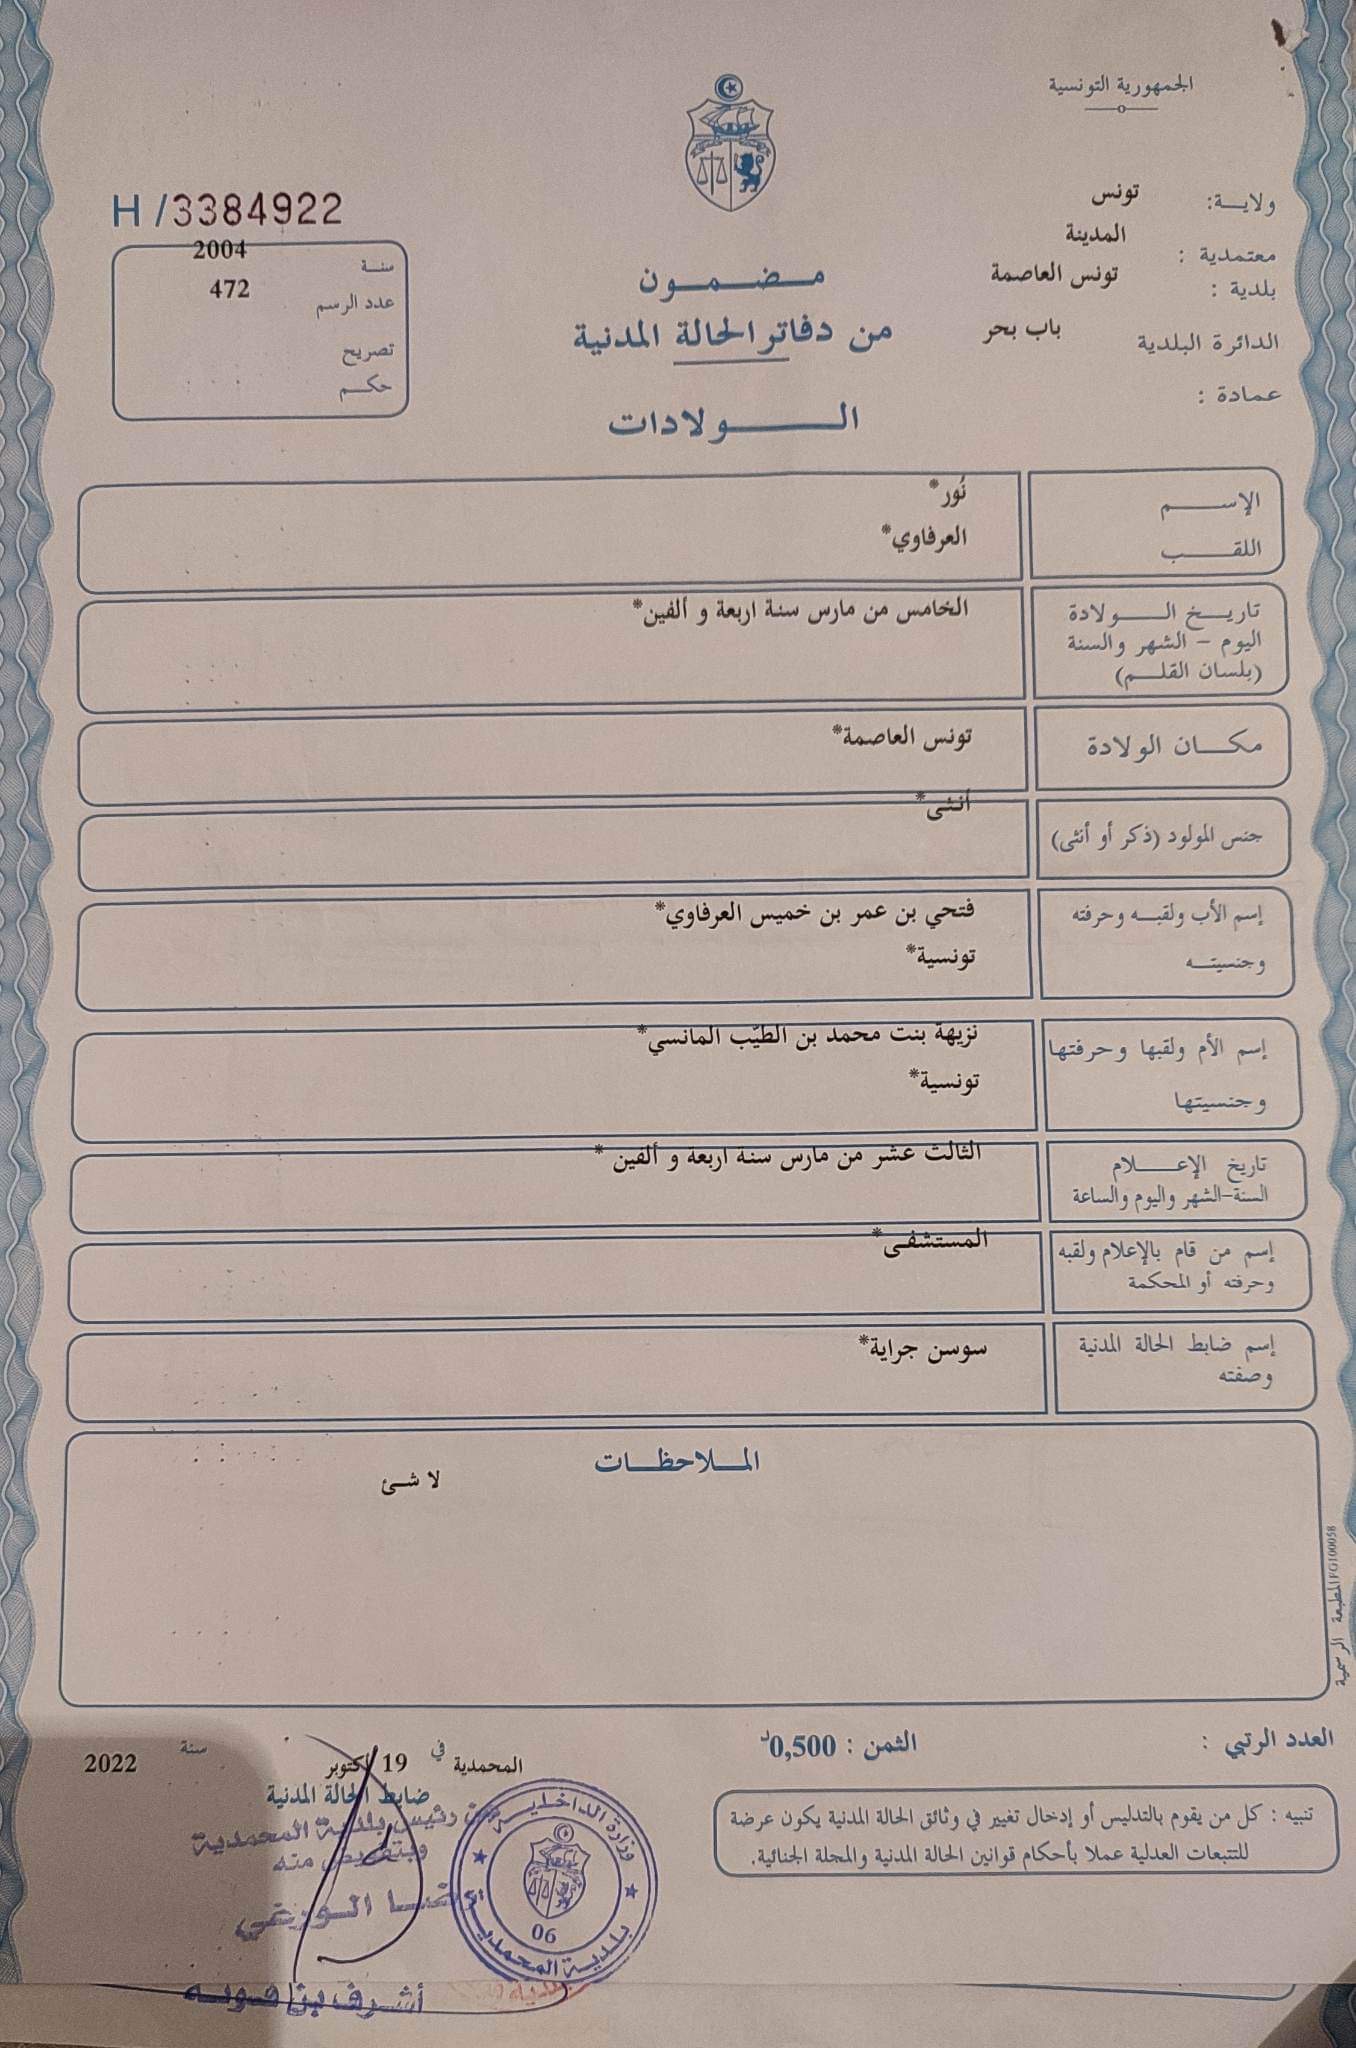 الجمهورية التونسية
ولاية: تونس
معتمدية : المدينة
بلدية : تونس العاصمة
الدائرة البلدية باب بحر
عمادة :
مضمون
من دفاتر الحالة المدنية
الولادات
H/3384922
سنة 2004
عدد الرسم 472
تصريح
حكم
الإسم نُور*
اللقب العرفاوي*
تاريخ الولادة الخامس من مارس سنة اربعة و ألفين*
اليوم - الشهر والسنة
(بلسان القلم)
مكان الولادة تونس العاصمة*
جنس المولود (ذكر أو أنثى) أنثى*
إسم الأب ولقبه وحرفته فتحي بن عمر بن خميس العرفاوي*
وجنسيته تونسية*
إسم الأم ولقبها وحرفتها نزيهة بنت محمد بن الطيّب المانسي*
وجنسيتها تونسية*
تاريخ الإعلام الثالث عشر من مارس سنة اربعة و ألفين *
السنة-الشهر واليوم والساعة
إسم من قام بالإعلام ولقبه المستشفى*
وحرفته أو المحكمة
إسم ضابط الحالة المدنية سوسن جراية*
وصفته
الملاحظات
لا شئ
المطبعة الرسمية FG100058
العدد الرتبي :
الثمن : 0,500د
المحمدية في 19 أكتوبر سنة 2022
ضابط الحالة المدنية
عن رئيس بلدية المحمدية
وبتفويض منه
رضا الورتي
وزارة الداخلية
06
بلدية المحمدية
تنبيه : كل من يقوم بالتدليس أو إدخال تغيير في وثائق الحالة المدنية يكون عرضة
للتتبعات العدلية عملا بأحكام قوانين الحالة المدنية والمجلة الجنائية.
أشرف بن